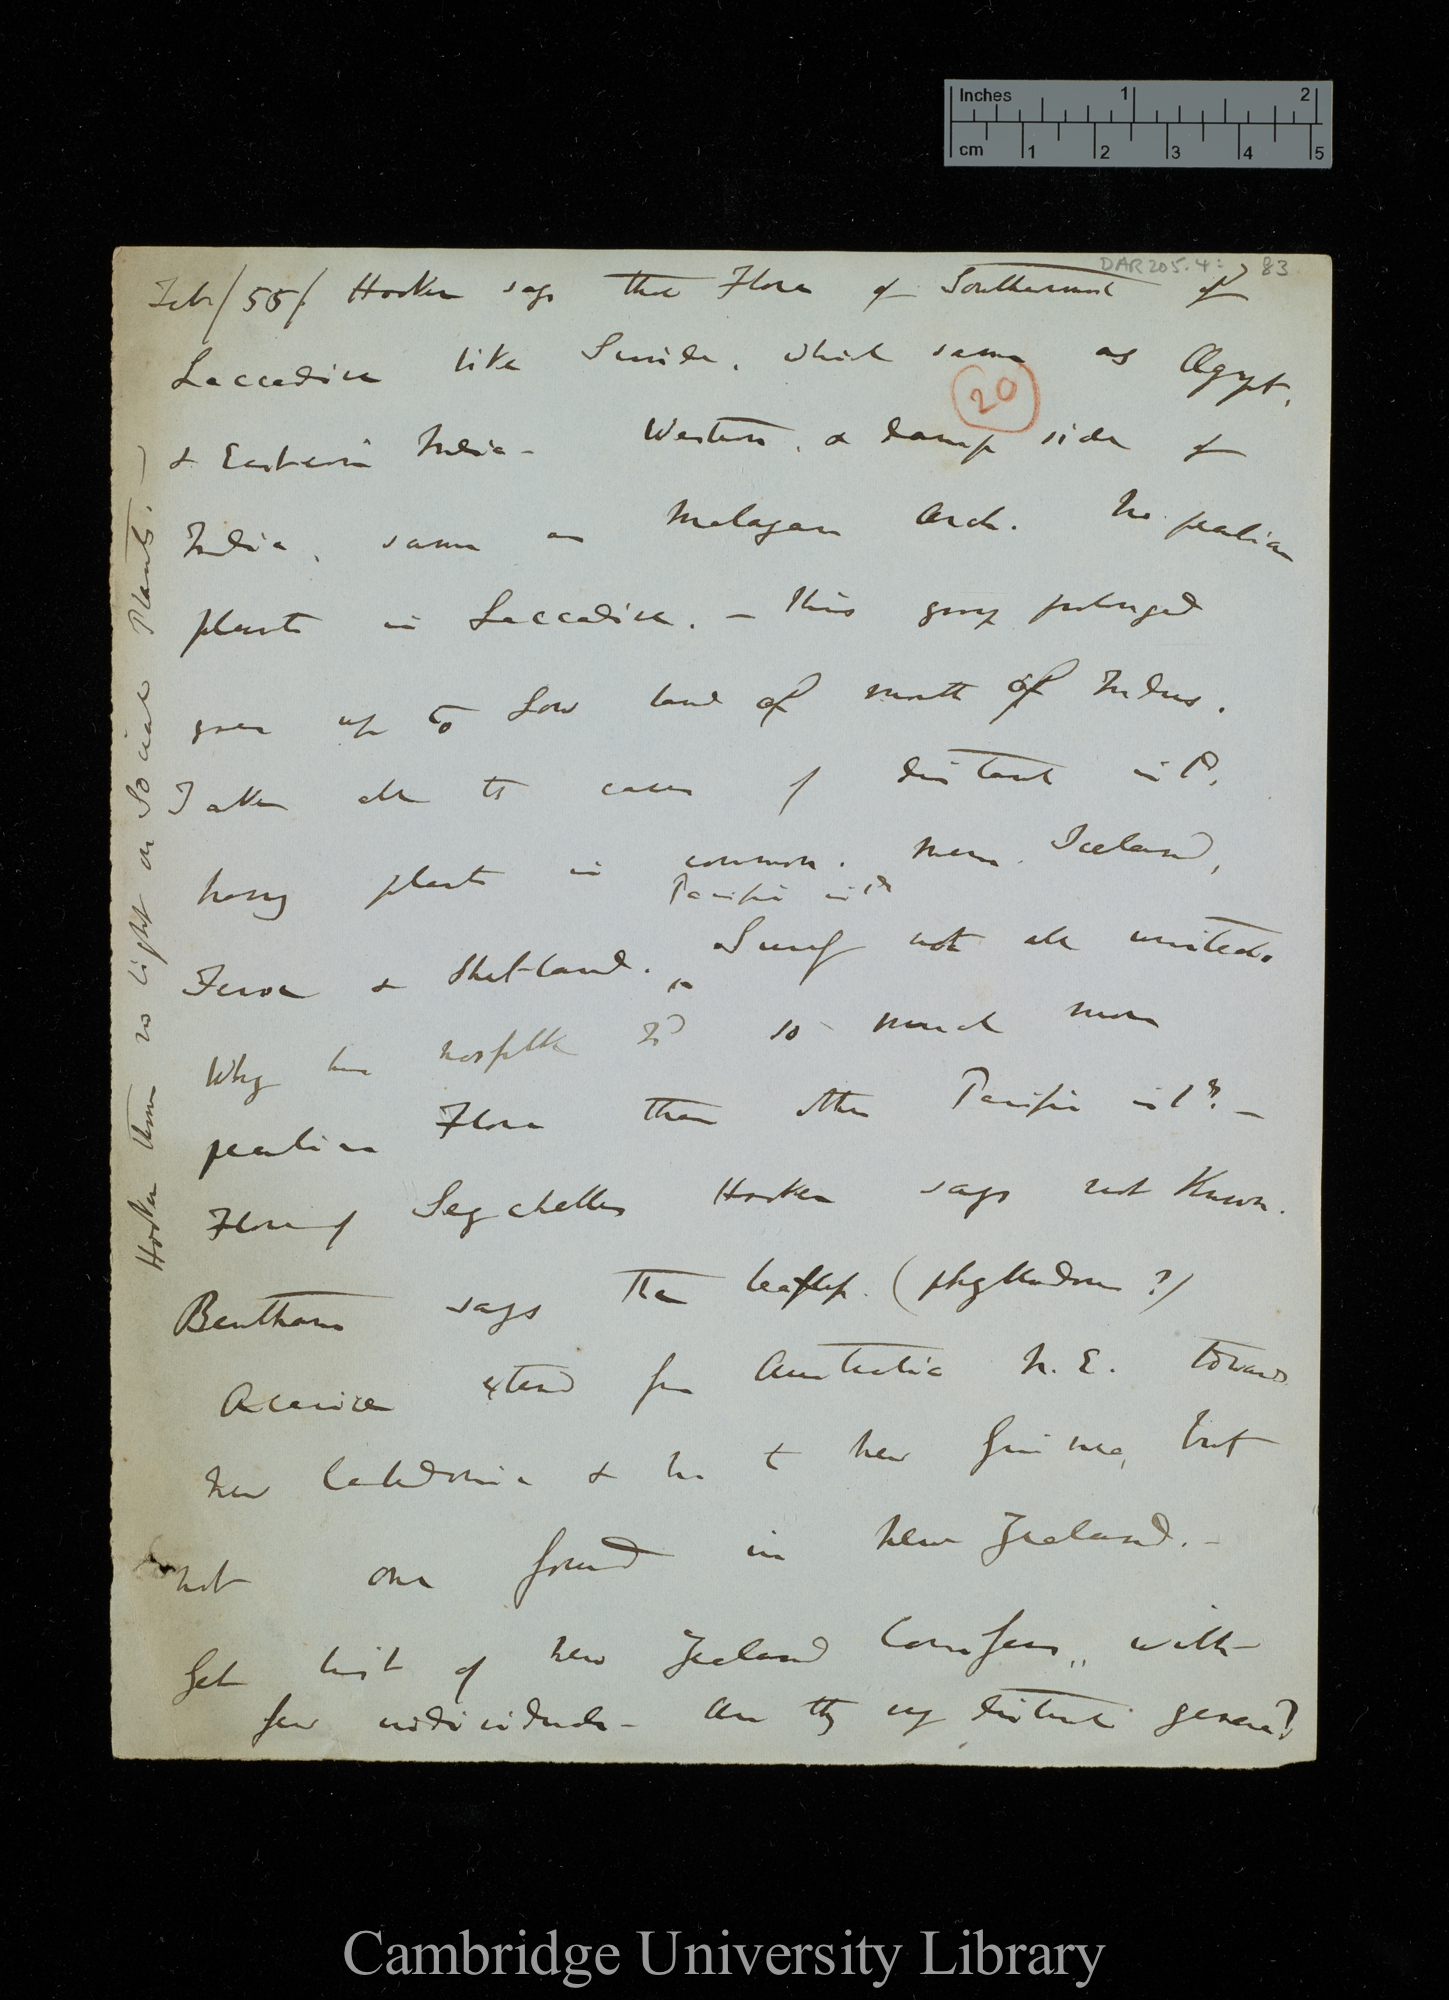 Inches 1 2
cm 1 2 3 4 5
DAR 205.4: 83
Feb/55/ Hooker says that Flora of Southernmost of
Laccadive like Scinde, which same as Ægypt,
20
& Eastern India - Western, & damp side of
India, same as Malayan Arch. No peculiar
plants in Laccadive. - This group prolonged
goes up to Low land of mouth of Indus.
Take all the cases of distant isld.
having plants in common. Mem. Iceland,
Pacific islds
Feroe & Shetland. Surely not all united.
Why has Norfolk Isd so much more
peculiar Flora than other Pacific islds. -
Flora of Seychelles Hooker says not known.
Bentham says the leafless (phyllodon ?)
Acaciae extend from Australia N.E. towards
New Caledonia & N. to New Guinea, but
not one found in New Zealand. -
Get list of New Zealand Conifers, with
few individuals - Are they very distinct genera?
Hooker throws no light on Social Plants. -
Cambridge University Library